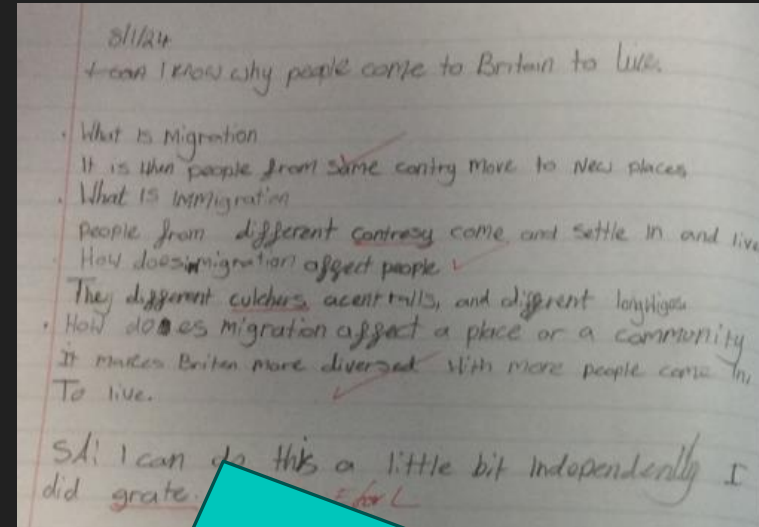 8/1/24
I can I know why people come to Britain to live.
What is migration
It is when people from same contry move to New places
What is immigration
People from different contresy come and settle in and live
How does imigration affect people
They different culchers, and different
How does migration affect a place or a community
It makes Briten more diversed with more people come in,
To live.
SA: I can do this a little bit Independently I
did grate.